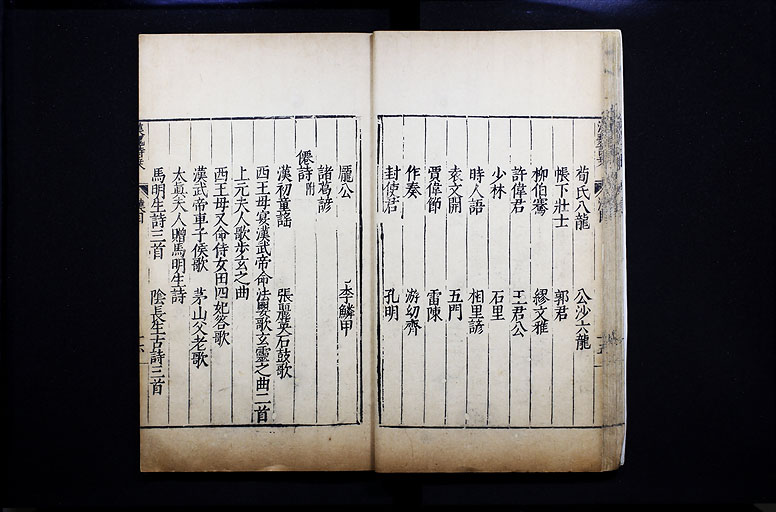 荀氏八龍 公沙六龍
帳下壯士 郭君
柳伯騫 繆文雅
許偉君 王君公
少林 石里
時人語 相里諺
袁文開 五門
賈偉節 雷陳
作奏 游幼齊
封使君 孔明
厲公 李鱗甲
諸葛諺
僊詩附
漢初童謠 張麗英石鼓歌
西王母宴漢武帝命法嬰歌玄靈之曲二首
上元夫人歌步玄之曲
西王母又命侍女田四妃答歌
漢武帝車子侯歌 茅山父老歌
太真夫人贈馬明生詩
馬明生詩三首 陰長生古詩三首